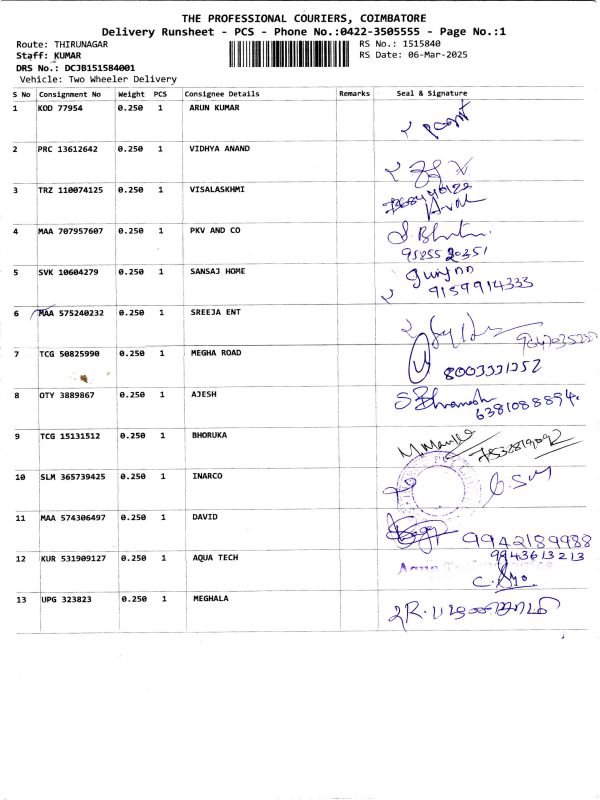 THE PROFESSIONAL COURIERS, COIMBATORE
Delivery Runsheet - PCS - Phone No.:0422-3505555 - Page No.:1
Route: THIRUNAGAR RS No.: 1515840
Staff: KUMAR RS Date: 06-Mar-2025
DRS No.: DCJB151584001
Vehicle: Two Wheeler Delivery
S No Consignment No Weight PCS Consignee Details Remarks Seal & Signature
1 KOD 77954 0.250 1 ARUN KUMAR
2 PRC 13612642 0.250 1 VIDHYA ANAND
3 TRZ 110074125 0.250 1 VISALASKHMI
4 MAA 707957607 0.250 1 PKV AND CO
9585520351
5 SVK 10604279 0.250 1 SANSAJ HOME
9159914333
6 MAA 575240232 0.250 1 SREEJA ENT
7 TCG 50825990 0.250 1 MEGHA ROAD
8003331252
8 OTY 3889867 0.250 1 AJESH
6381088894
9 TCG 15131512 0.250 1 BHORUKA
10 SLM 365739425 0.250 1 INARCO
11 MAA 574306497 0.250 1 DAVID
9942189988
12 KUR 531909127 0.250 1 AQUA TECH
9943613213
13 UPG 323823 0.250 1 MEGHALA